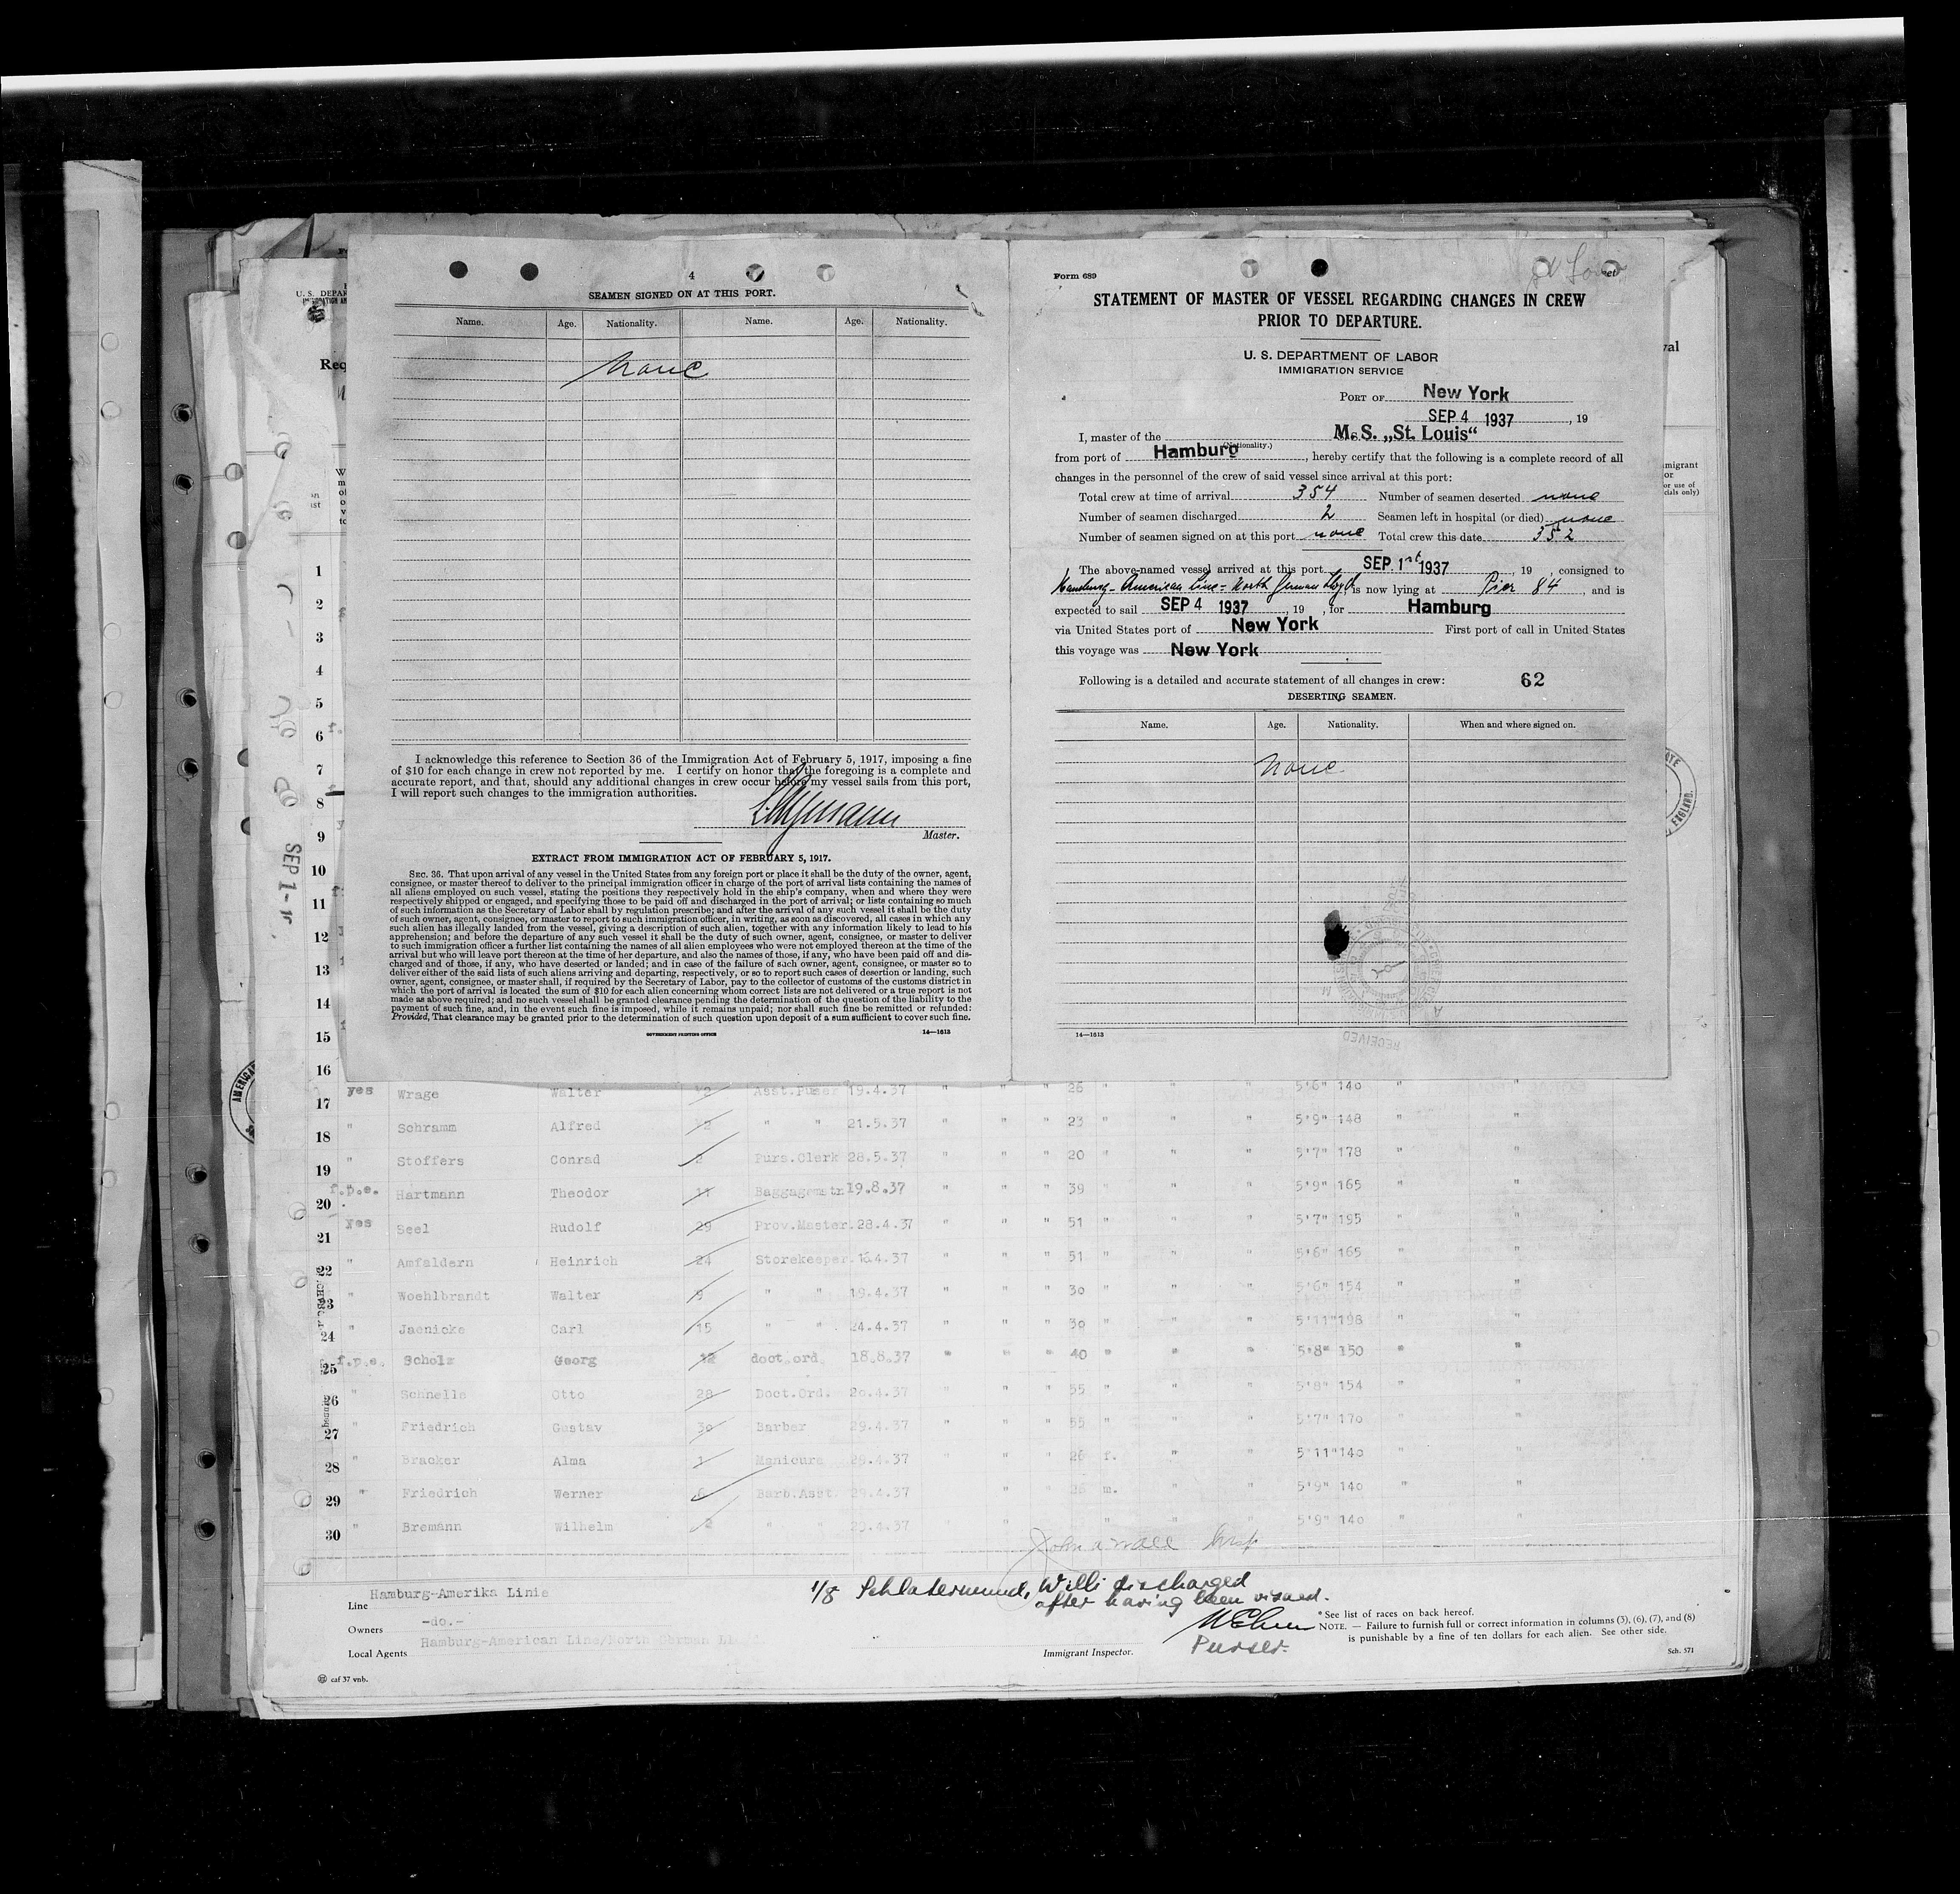 4
SEAMEN SIGNED ON AT THIS PORT.
Name. Age. Nationality. Name. Age. Nationality.
None
I acknowledge this reference to Section 36 of the Immigration Act of February 5, 1917, imposing a fine
of $10 for each change in crew not reported by me. I certify on honor that the foregoing is a complete and
accurate report, and that, should any additional changes in crew occur before my vessel sails from this port,
I will report such changes to the immigration authorities.
Master.
EXTRACT FROM IMMIGRATION ACT OF FEBRUARY 5, 1917.
SEC. 36. That upon arrival of any vessel in the United States from any foreign port or place it shall be the duty of the owner, agent,
consignee, or master thereof to deliver to the principal immigration officer in charge of the port of arrival lists containing the names of
all aliens employed on such vessel, stating the positions they respectively hold in the ship's company, when and where they were
respectively shipped or engaged, and specifying those to be paid off and discharged in the port of arrival; or lists containing so much
of such information as the Secretary of Labor shall by regulation prescribe; and after the arrival of any such vessel it shall be the duty
of such owner, agent, consignee, or master to report to such immigration officer, in writing, as soon as discovered, all cases in which any
such alien has illegally landed from the vessel, giving a description of such alien, together with any information likely to lead to his
apprehension; and before the departure of any such vessel it shall be the duty of such owner, agent, consignee, or master to deliver
to such immigration officer a further list containing the names of all alien employees who were not employed thereon at the time of the
arrival but who will leave port thereon at the time of her departure, and also the names of those, if any, who have been paid off and dis-
charged and of those, if any, who have deserted or landed; and in case of the failure of such owner, agent, consignee, or master so to
deliver either of the said lists of such aliens arriving and departing, respectively, or so to report such cases of desertion or landing, such
owner, agent, consignee, or master shall, if required by the Secretary of Labor, pay to the collector of customs of the customs district in
which the port of arrival is located the sum of $10 for each alien concerning whom correct lists are not delivered or a true report is not
made as above required; and no such vessel shall be granted clearance pending the determination of the question of the liability to the
payment of such fine, and, in the event such fine is imposed, while it remains unpaid; nor shall such fine be remitted or refunded:
Provided, That clearance may be granted prior to the determination of such question upon deposit of a sum sufficient to cover such fine.
GOVERNMENT PRINTING OFFICE 14—1613
Form 689
STATEMENT OF MASTER OF VESSEL REGARDING CHANGES IN CREW
PRIOR TO DEPARTURE.
U. S. DEPARTMENT OF LABOR
IMMIGRATION SERVICE
PORT OF New York
SEP 4 1937, 19
I, master of the M. S. „St. Louis“
(Nationality.)
from port of Hamburg, hereby certify that the following is a complete record of all
changes in the personnel of the crew of said vessel since arrival at this port:
Total crew at time of arrival 354 Number of seamen deserted none
Number of seamen discharged 2 Seamen left in hospital (or died) none
Number of seamen signed on at this port none Total crew this date 352
The above-named vessel arrived at this port SEP. 1st 1937, 19 , consigned to
Hamburg-American Line - North German Lloyd is now lying at Pier 84, and is
expected to sail SEP 4 1937, 19 , for Hamburg
via United States port of New York First port of call in United States
this voyage was New York
Following is a detailed and accurate statement of all changes in crew: 62
DESERTING SEAMEN.
Name. Age. Nationality. When and where signed on.
None
RECEIVED
14—1613
SEP 1-
1
2
3
4
5
6
7
8
9
10
11
12
13
14
15
16
17 yes Wrage Walter 2 Asst.Purser 19.4.37 " " " 26 " " " 5'6" 140 " "
18 " Schramm Alfred " " 21.5.37 " " " 23 " " " 5'9" 148 " "
19 " Stoffers Conrad Purs.Clerk 28.5.37 " " " 20 " " " 5'7" 178 " "
20 f.p.e. Hartmann Theodor 11 Baggagemstr 19.8.37 " " " 39 " " " 5'9" 165 " "
21 yes Seel Rudolf 29 Prov.Master 28.4.37 " " " 51 " " " 5'7" 195 " "
22 " Amfaldern Heinrich 24 Storekeeper 16.4.37 " " " 51 " " " 5'6" 165 " "
23 " Woehlbrandt Walter 9 " " 19.4.37 " " " 30 " " " 5'6" 154 " "
24 " Jaenicke Carl 15 " " 24.4.37 " " " 39 " " " 5'11" 198 " "
25 f.p.e. Scholz Georg 12 doct.ord. 18.8.37 " " " 40 " " " 5'8" 150 " "
26 " Schnelle Otto 28 Doct.Ord. 20.4.37 " " " 55 " " " 5'8" 154 " "
27 " Friedrich Gustav 30 Barber 29.4.37 " " " 55 " " " 5'7" 170 " "
28 " Bracker Alma 1 Manicure 29.4.37 " " " 26 f. " " 5'11" 140 " "
29 " Friedrich Werner 6 Barb.Asst. 29.4.37 " " 26 m. " " 5'9" 140 " "
30 " Bremann Wilhelm 2 " " 29.4.37 " " " " " " 5'9" 140 " "
John A Wall Insp
Line Hamburg-Amerika Linie
Owners -do.-
Local Agents Hamburg-American Line/North German
1/8 Schlatermund, Willi discharged
after having been visaed.
Purser.
Immigrant Inspector.
* See list of races on back hereof.
NOTE. — Failure to furnish full or correct information in columns (3), (6), (7), and (8)
is punishable by a fine of ten dollars for each alien. See other side.
Sch. 571
caf 37 vnb.